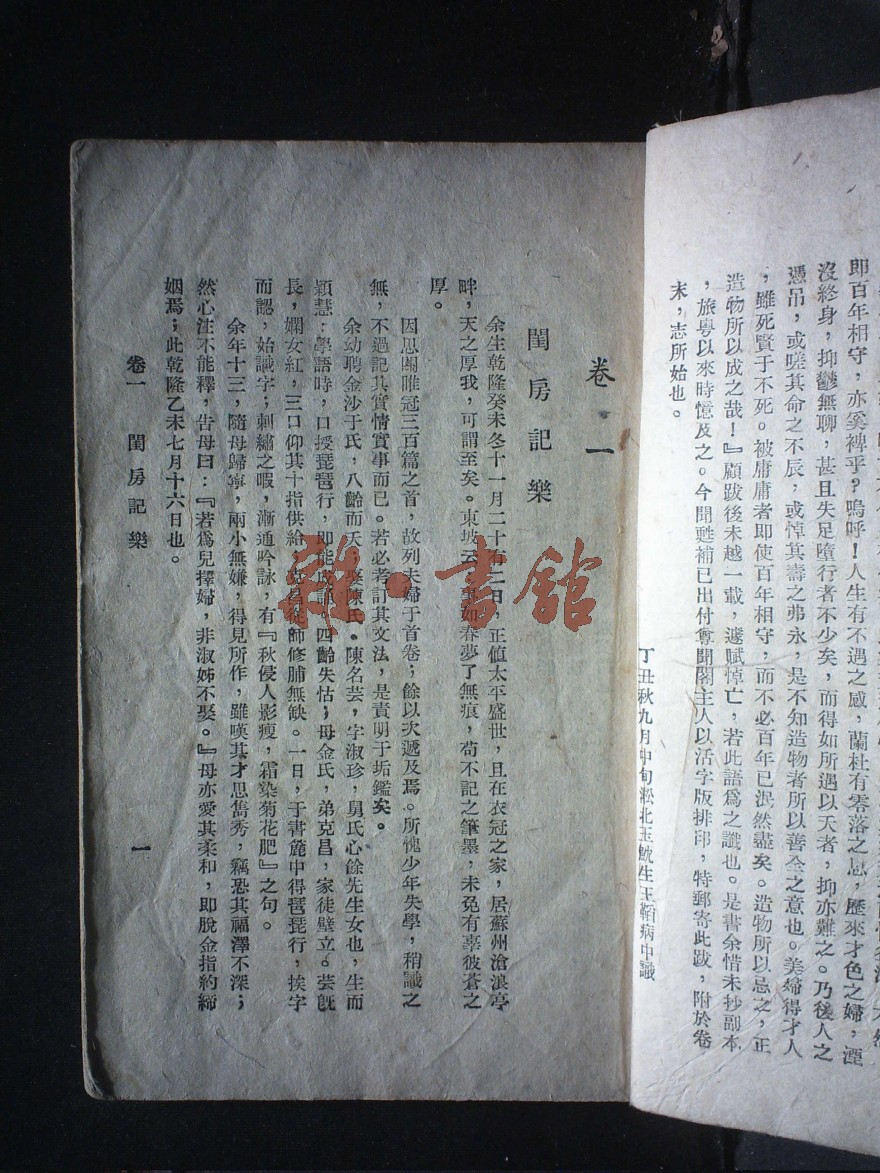 即百年相守，亦奚裨乎？嗚呼！人生有不遇之感，蘭杜有零落之思，歷來才色之婦，湮
沒終身，抑鬱無聊，甚且失足墮行者不少矣，而得如所遇以夭者，抑亦難之。乃後人之
憑吊，或嗟其命之不辰，或悼其壽之弗永，是不知造物者所以善全之意也。美婦得才人
，雖死賢于不死。被庸庸者即使百年相守，而不必百年已泯然盡矣。造物所以忌之，正
造物所以成之哉！』顧跋後未越一載，遽賦悼亡，若此語爲之讖也。是書余惜未抄副本
，旅粤以來時憶及之。今聞甦補已出付尊聞閣主人以活字版排印，特郵寄此跋，附於卷
末，志所始也。
丁丑秋九月中旬淞北玉魫生王韜病中識
卷一
閨房記樂
余生乾隆癸未冬十一月二十有二日，正值太平盛世，且在衣冠之家，居蘇州滄浪亭
畔，天之厚我，可謂至矣。東坡云：事如春夢了無痕，苟不記之筆墨，未免有辜彼蒼之
厚。
因思關雎冠三百篇之首，故列夫婦于首卷；餘以次遞及焉。所愧少年失學，稍識之
無，不過記其實情實事而已。若必考訂其文法，是責明于垢鑑矣。
余幼聘金沙于氏，八齡而夭；娶陳氏。陳名芸，字淑珍，舅氏心餘先生女也，生而
穎慧：學語時，口授琵琶行，即能成誦。四齡失怙；母金氏，弟克昌，家徒壁立。芸既
長，嫻女紅，三口仰其十指供給，克昌從師修脯無缺。一日，于書簏中得琵琶行，挨字
而認，始識字；刺繡之暇，漸通吟詠，有『秋侵人影瘦，霜染菊花肥』之句。
余年十三，隨母歸寧，兩小無嫌，得見所作，雖嘆其才思雋秀，竊恐其福澤不深；
然心注不能釋，告母曰：『若爲兒擇婦，非淑姊不娶。』母亦愛其柔和，即脫金指約締
姻焉；此乾隆乙未七月十六日也。
卷一　閨房記樂　一
雜·書館